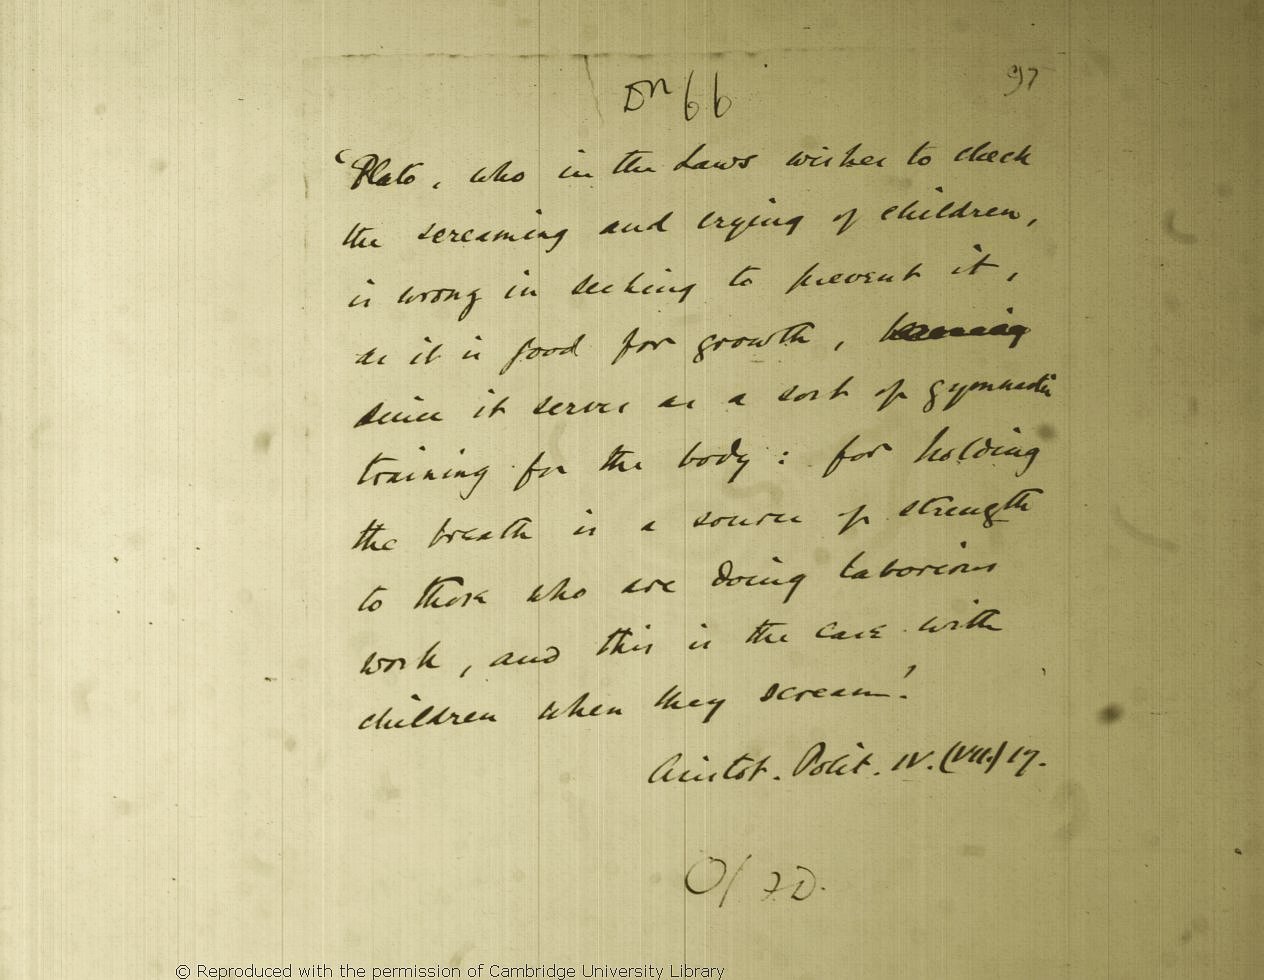 Dn 66
97
'Plato, who in the Laws wishes to check
the screaming and crying of children,
is wrong in seeking to prevent it,
as it is good for growth,
since it serves as a sort of gymnastic
training for the body: for holding
the breath is a source of strength
to those who are doing laborious
work, and this is the case with
children when they scream'.
Aristot. Polit. IV. (VII.) 17.
O/ F D.
© Reproduced with the permission of Cambridge University Library